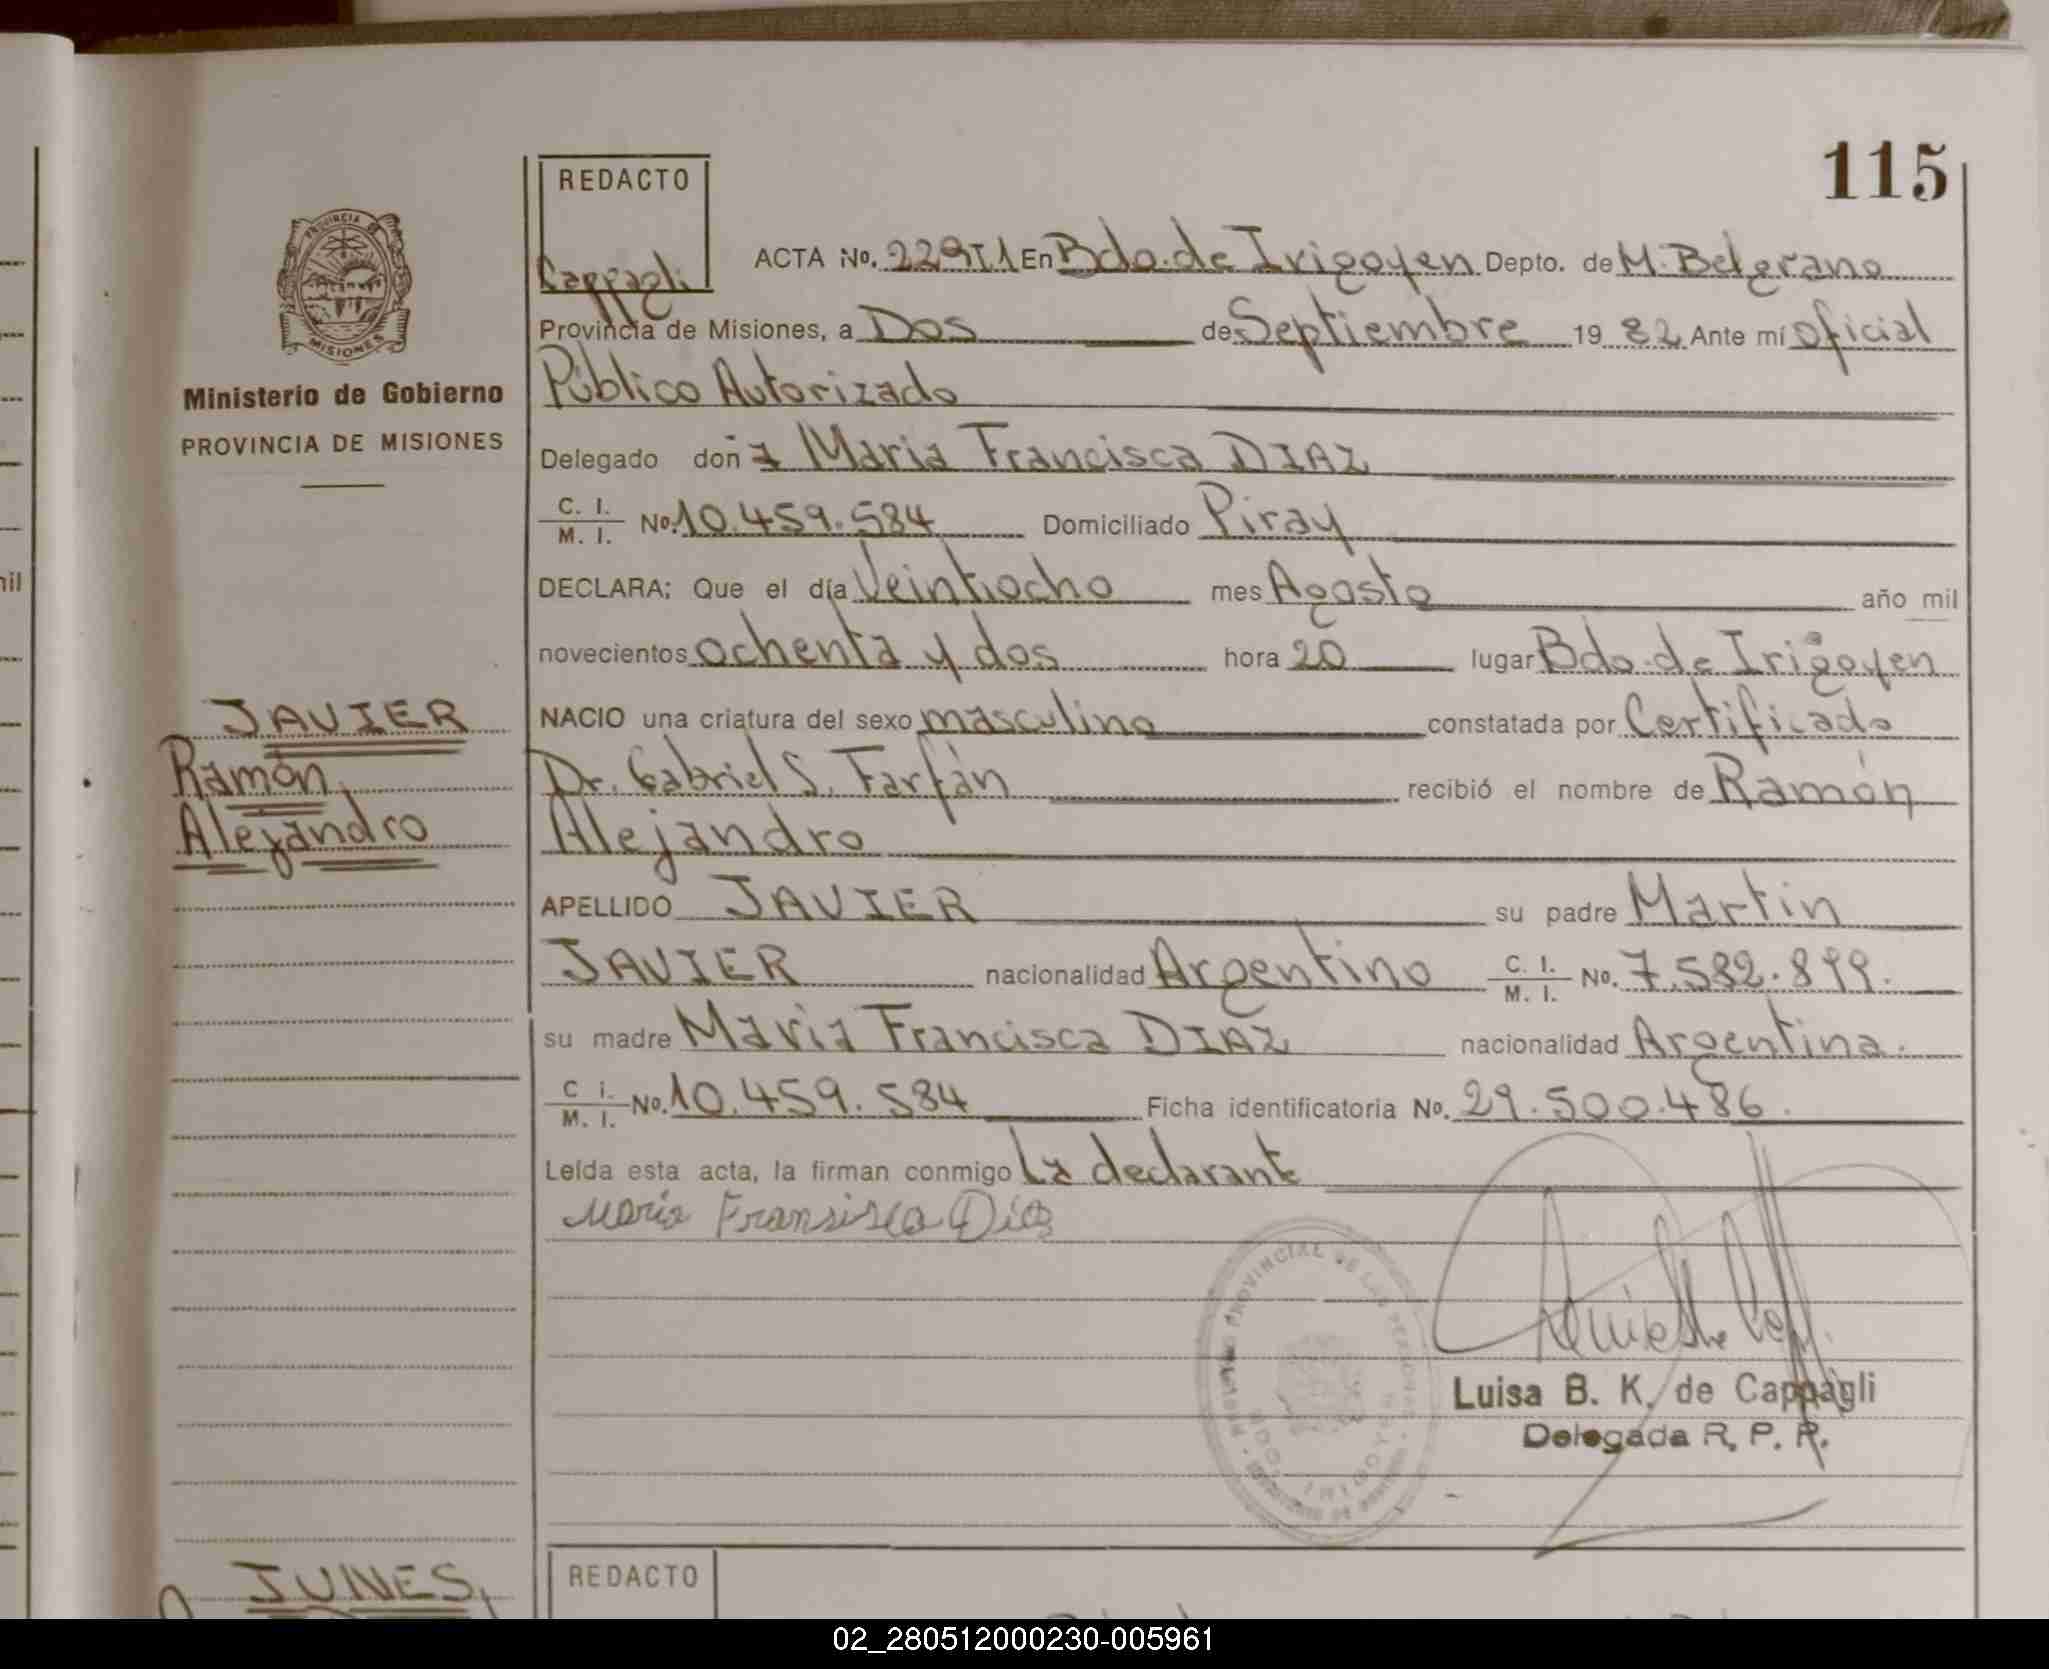 115
REDACTO
Cappagli
PROVINCIA DE
MISIONES
Ministerio de Gobierno
PROVINCIA DE MISIONES
ACTA No. 229T1 En Bdo. de Irigoyen Depto. de M. Belgrano
Provincia de Misiones, a Dos de Septiembre 19 82 Ante mí Oficial
Público Autorizado
Delegado don a Maria Francisca DIAZ
C. I. / M. I. No. 10.459.584 Domiciliado Piray
DECLARA; Que el día Veintiocho mes Agosto año mil
novecientos ochenta y dos hora 20 lugar Bdo. de Irigoyen
NACIO una criatura del sexo masculino constatada por Certificado
Dr. Gabriel S. Farfán recibió el nombre de Ramón
Alejandro
JAVIER
Ramón,
Alejandro
APELLIDO JAVIER su padre Martin
JAVIER nacionalidad Argentino C. I. / M. I. No. 7.582.899.
su madre Maria Francisca DIAZ nacionalidad Argentina.
C i. / M. I. No. 10.459.584 Ficha identificatoria No. 29.500.486.
Leída esta acta, la firman conmigo La declarante
Maria Fransisca Diaz
PROVINCIAL DE LAS PERSONAS
BDO. IRIGOYEN
Luisa B. K. de Cappagli
Delegada R. P. P.
JUNES,
REDACTO
mil
02_280512000230-005961